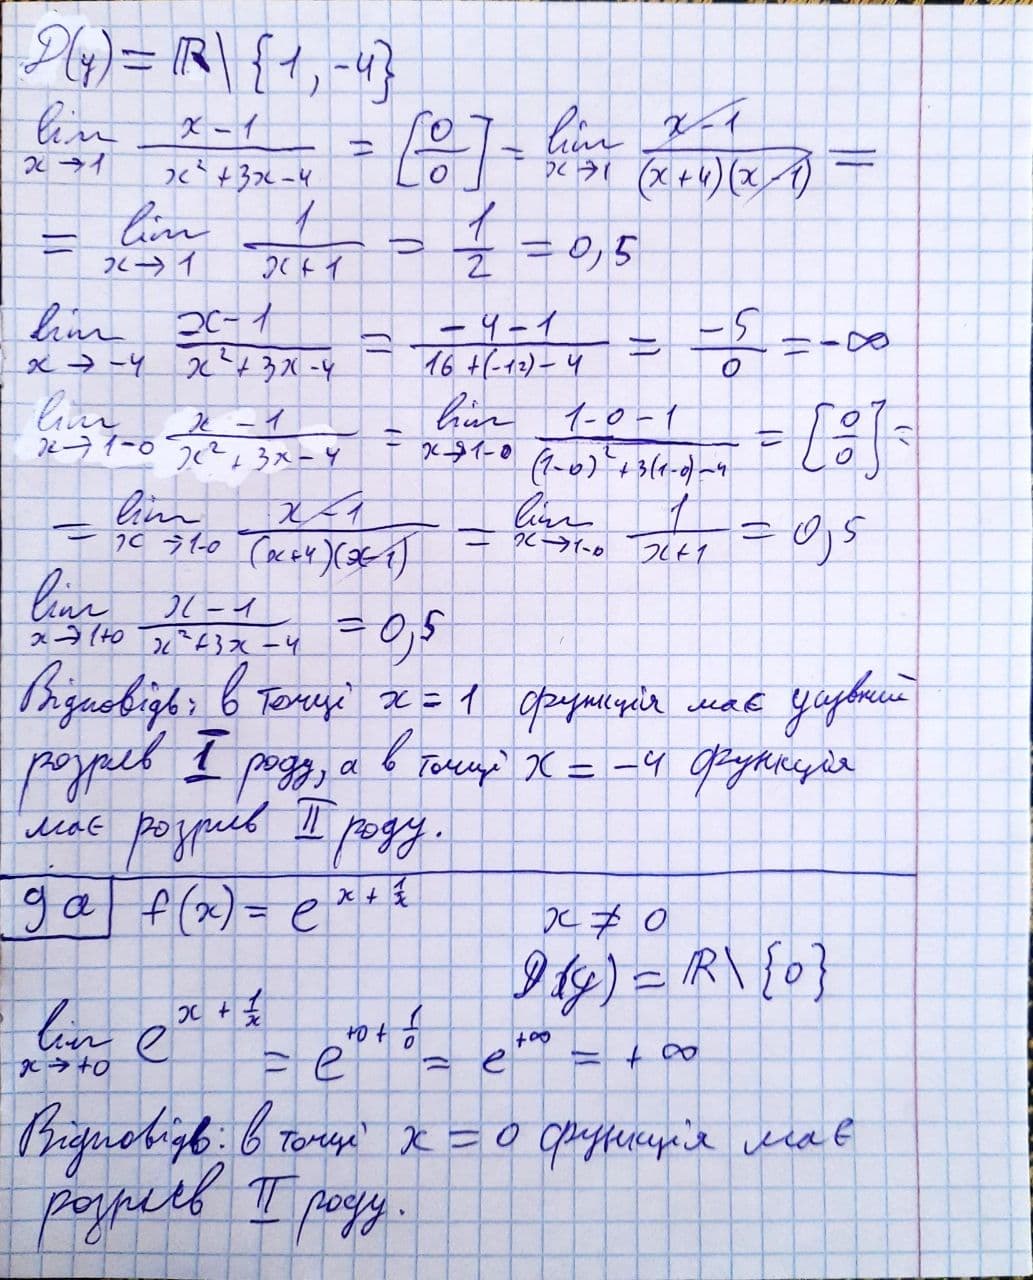 D(y) = ℝ \ {1, -4}
lim x→1 (x-1)/(x²+3x-4) = [0/0] = lim x→1 (x-1)/((x+4)(x-1)) =
= lim x→1 1/(x+1) = 1/2 = 0,5
lim x→-4 (x-1)/(x²+3x-4) = (-4-1)/(16+(-12)-4) = -5/0 = -∞
lim x→1-0 (x-1)/(x²+3x-4) = lim x→1-0 (1-0-1)/((1-0)²+3(1-0)-4) = [0/0] =
= lim x→1-0 (x-1)/((x+4)(x-1)) = lim x→1-0 1/(x+1) = 0,5
lim x→1+0 (x-1)/(x²+3x-4) = 0,5
Відповідь: в точці x = 1 функція має усувний
розрив I роду, а в точці x = -4 функція
має розрив II роду.
9a f(x) = e^(x + 1/x) x ≠ 0
D(y) = ℝ \ {0}
lim x→+0 e^(x + 1/x) = e^(+0 + 1/0) = e^(+∞) = +∞
Відповідь: в точці x = 0 функція має
розрив II роду.